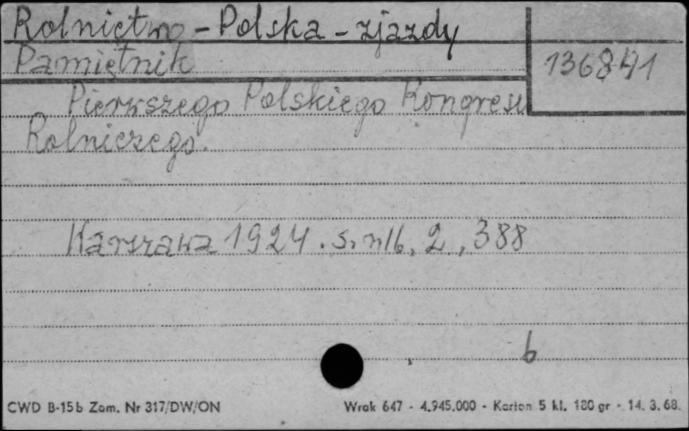 Rolnictwo - Polska - zjazdy
Pamiętnik
136841
Pierwszego Polskiego Kongresu
Rolniczego.
Warszawa 1924. s. nlb. 2, 388
b
CWD B-15b Zam. Nr 317/DW/ON
Wrak 647 - 4.945.000 - Karton 5 kl. 180 gr - 14. 3. 68.